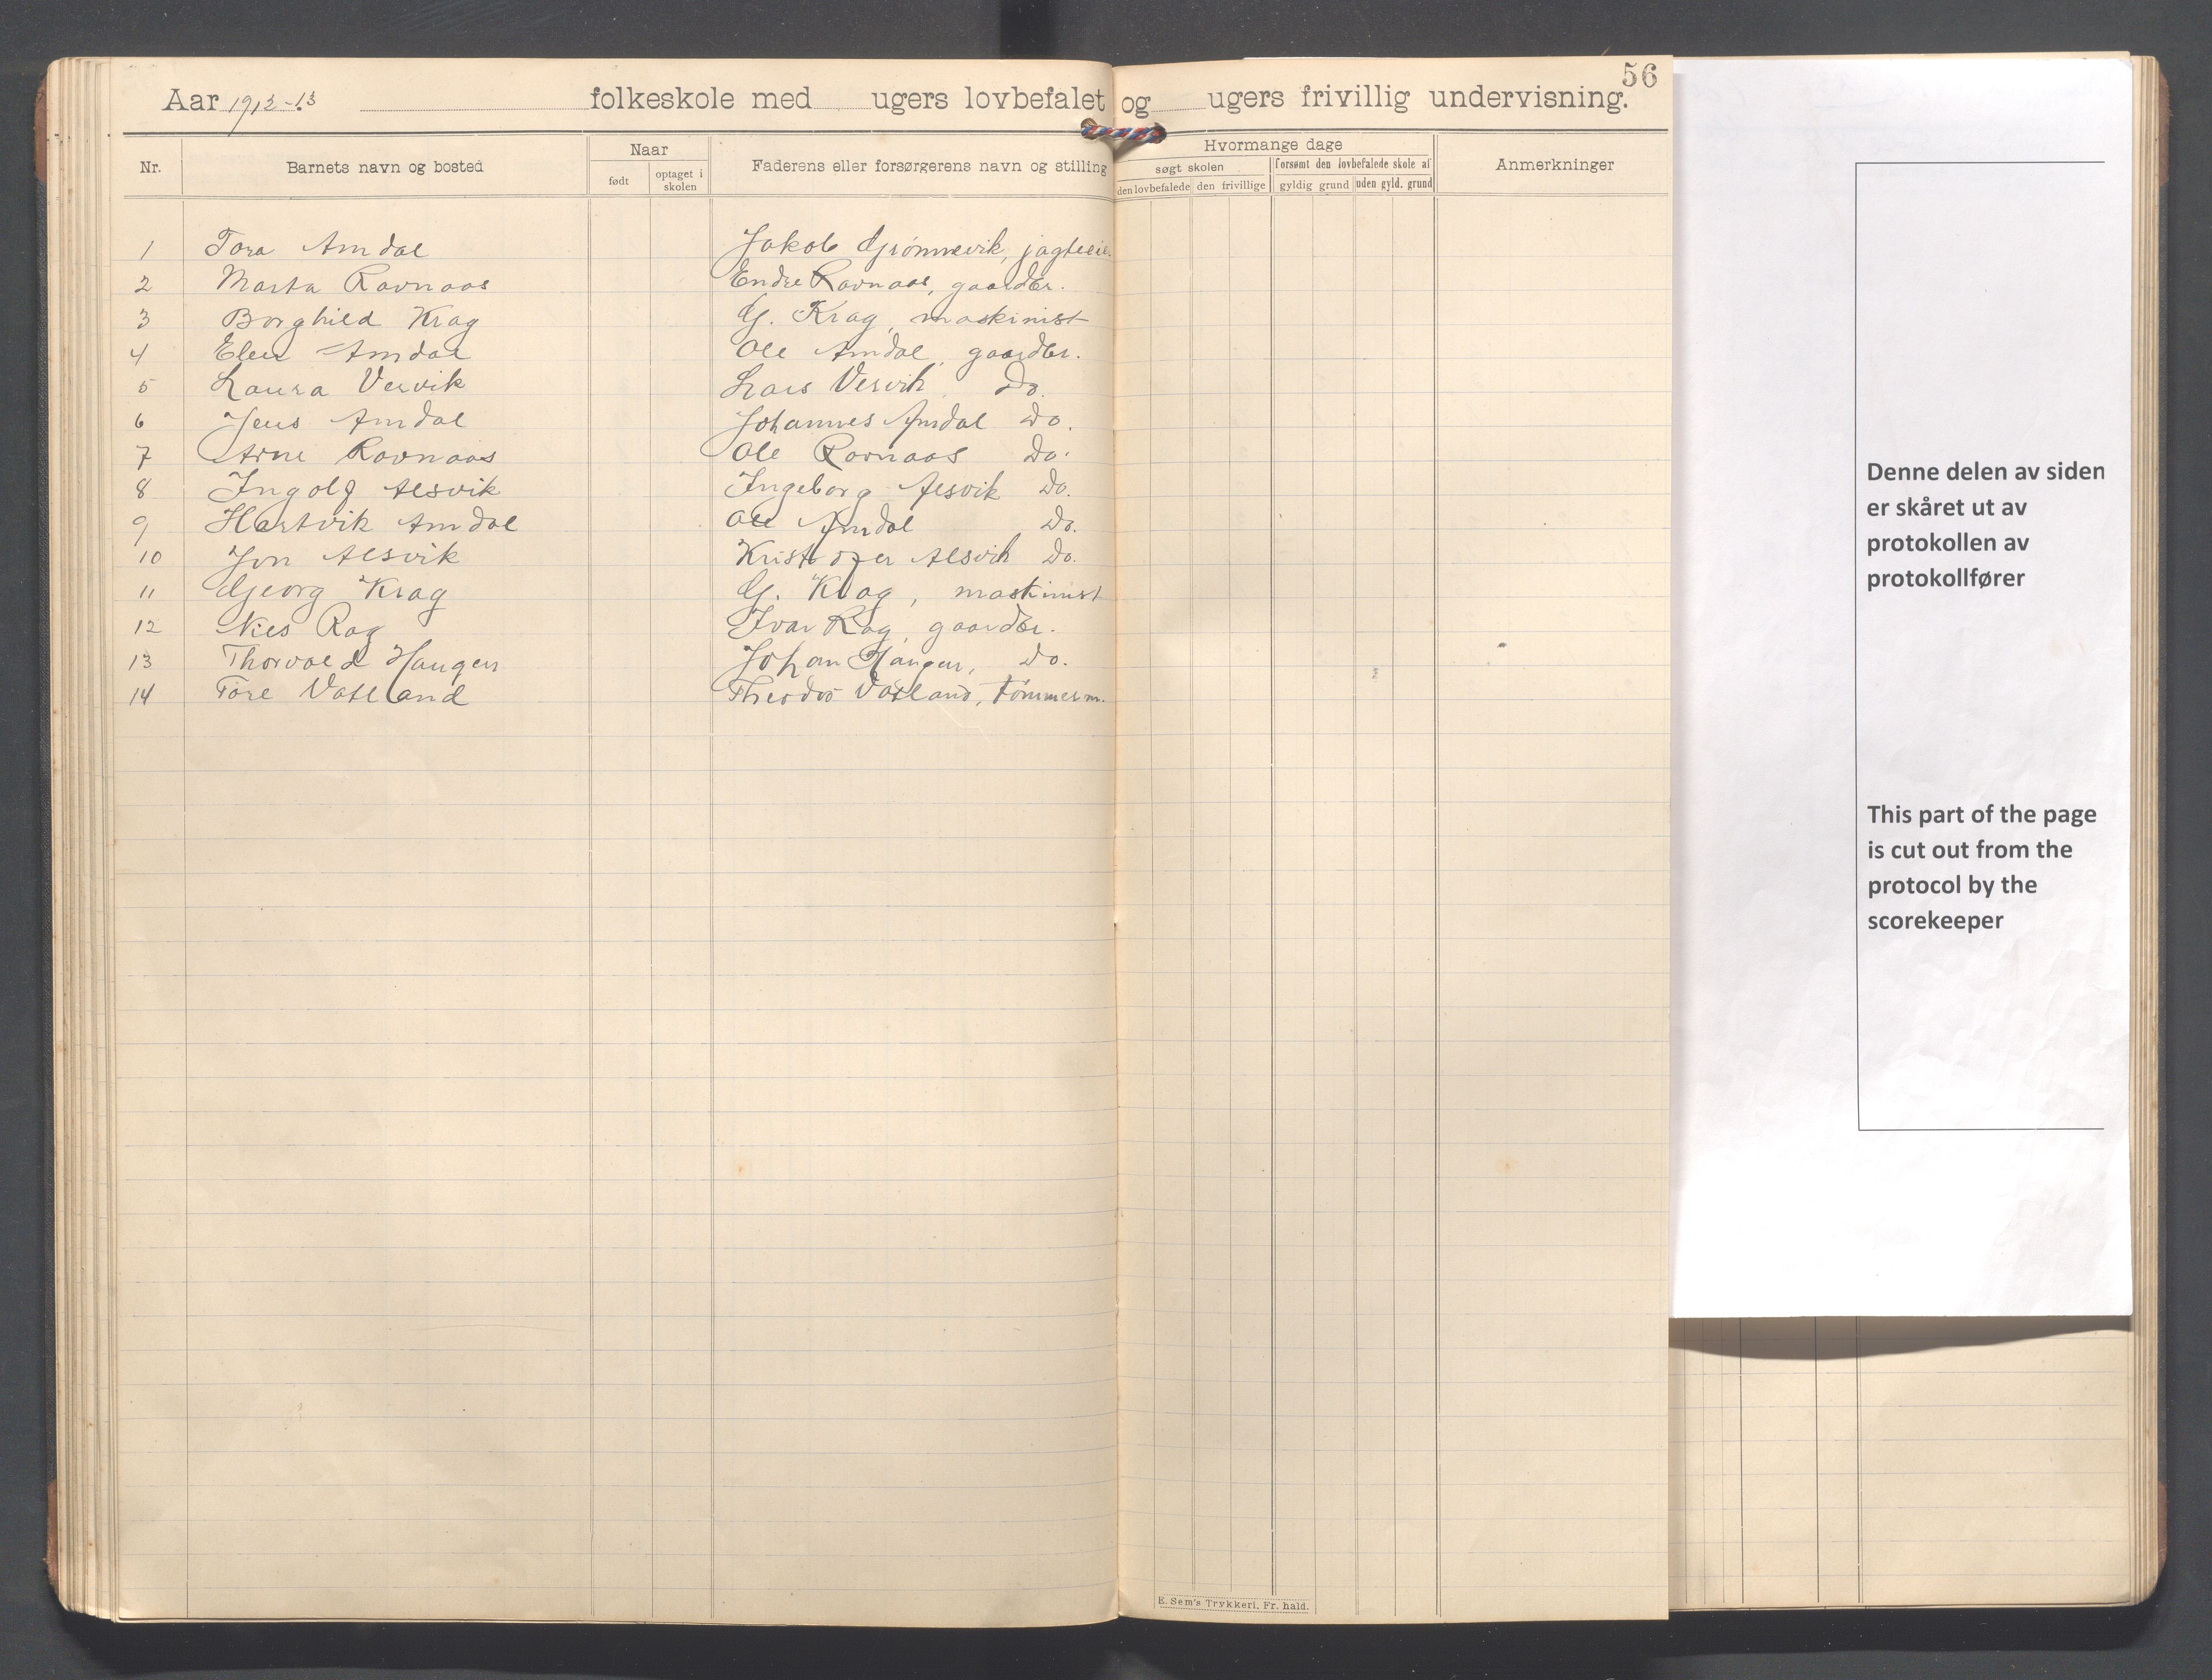 56
Aar 1912-13 folkeskole med ugers lovbefalet og ugers frivillig undervisning.
Nr. Barnets navn og bosted Naar født optaget i skolen Faderens eller forsørgerens navn og stilling Hvormange dage søgt skolen den lovbefalede den frivillige forsømt den lovbefalede skole af gyldig grund uden gyld. grund Anmerkninger
1 Tora Amdal Jakob Grønnevik, jagteeier
2 Marta Ravnaas Endre Ravnaas, gaardbr.
3 Borghild Krag G. Krag, maskinist
4 Elen Amdal Ole Amdal, gaardbr.
5 Laura Vervik Lars Vervik, Do.
6 Jens Amdal Johannes Amdal Do.
7 Arne Ravnaas Ole Ravnaas Do.
8 Ingolf Alsvik Ingeborg Alsvik Do.
9 Hartvik Amdal Ole Amdal Do.
10 Jon Alsvik Kristofer Alsvik Do.
11 Georg Krag G. Krag, maskinist
12 Nils Rag Ivar Rag, gaardbr.
13 Thorvald Haugen Johan Haugen, Do.
14 Tore Vatland Theodor Vatland, Tømmerm.
E. Sem's Trykkeri, Fr. hald.
Denne delen av siden
er skåret ut av
protokollen av
protokollfører
This part of the page
is cut out from the
protocol by the
scorekeeper